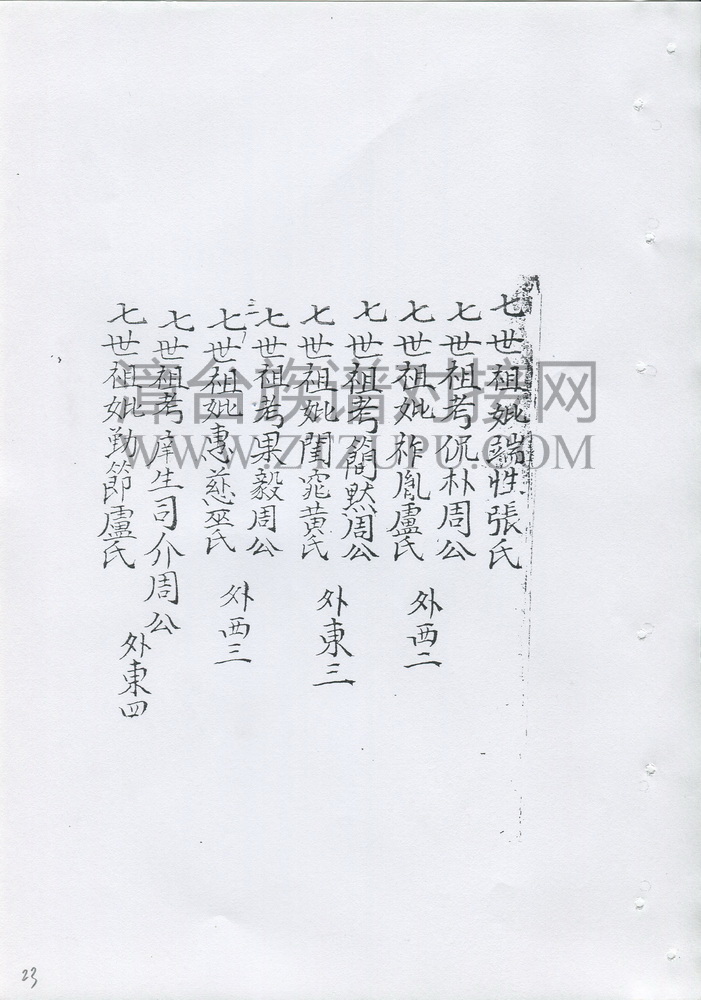 七世祖妣端性張氏
七世祖考侃朴周公
七世祖妣祚胤盧氏
外西二
七世祖考簡默周公
七世祖妣閨窕黃氏
外東三
七世祖考果毅周公
三
七世祖妣惠慈巫氏
外西三
七世祖考庠生司介周公
七世祖妣勤節盧氏
外東四
漳台族谱对接网
WWW.ZTZUPU.COM
23